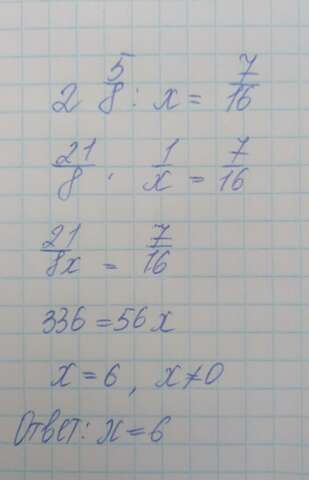 2 5/8 : x = 7/16
21/8 · 1/x = 7/16
21/8x = 7/16
336 = 56x
x = 6, x ≠ 0
Ответ: x = 6